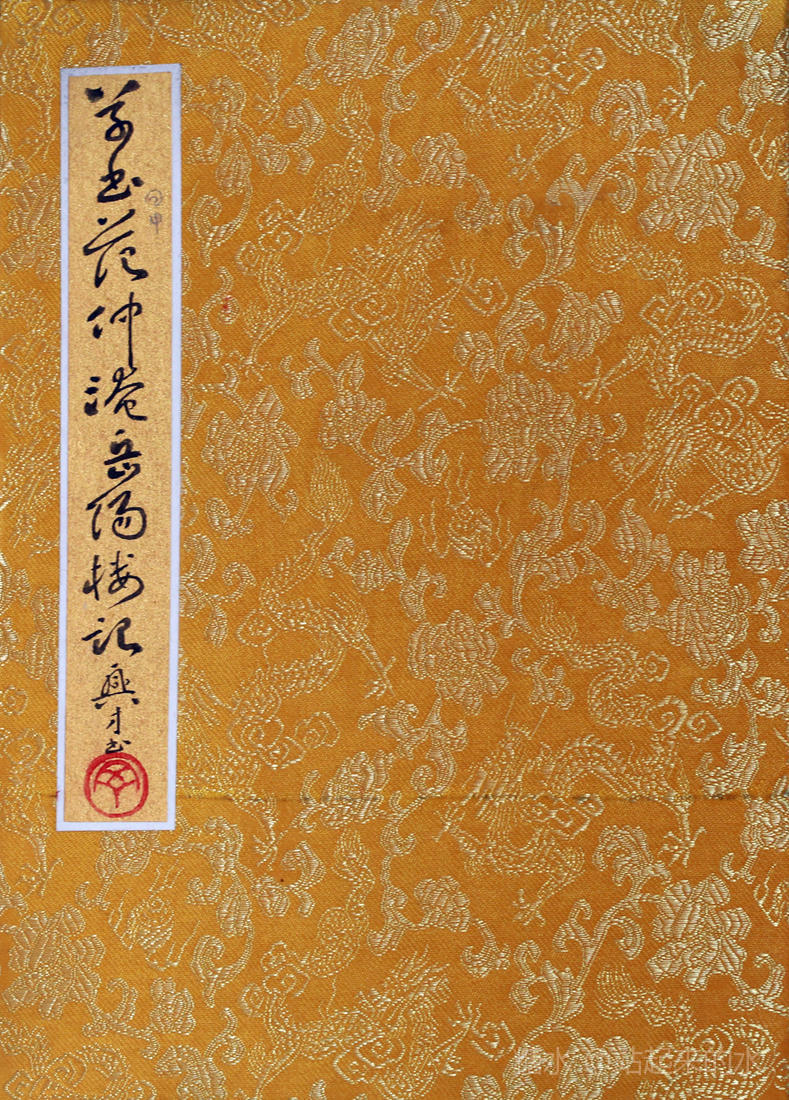 草书范仲淹岳阳楼记 兴才书